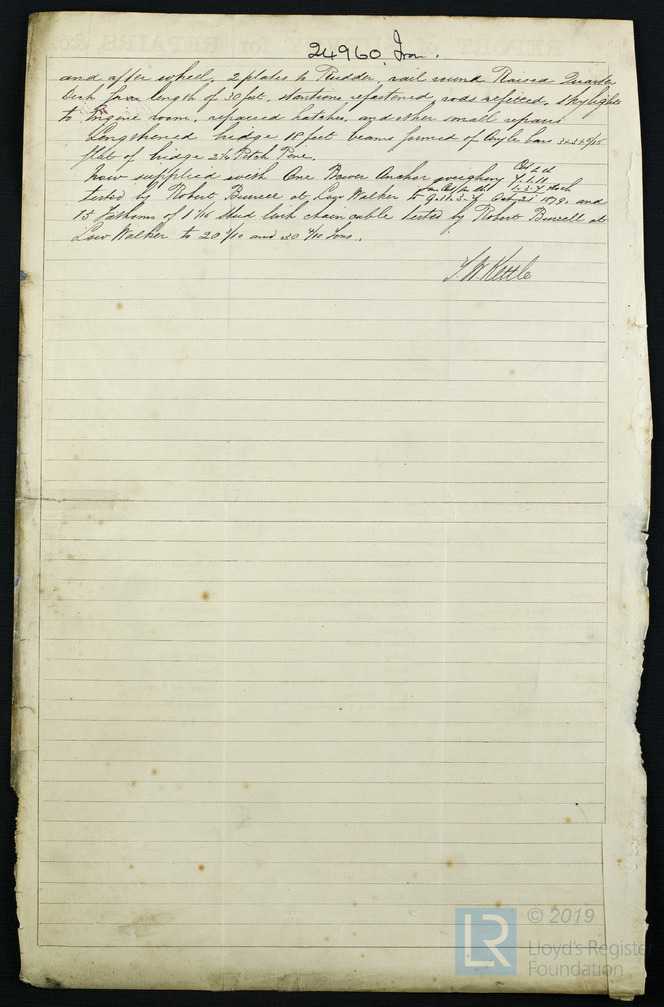 24960 Iron.
and after wheel, 2 plates to Rudder, rail round Raised Quarter
Deck for a length of 30 feet, stantions refastened, rods refitted, Skylights
to Engine room, repaired hatches, and other small repairs
Lengthened bridge 18 feet beams formed of Angle bars 3x3x 6/16
flat of bridge 2½ Pitch Pine.
Now supplied with One Bower Anchor weighing Cwt q lb 7.1.11
tested by Robert Burrell at Low Walker to 9.11.3.7 1.3.7 Stock Oct 21st 1879, and
15 Fathoms of 1 1/16 Stud link chain cable tested by Robert Burrell at
Low Walker to 20 3/10 and 30 4/10 Tons.
J. W. Kettle
LR
© 2019
Lloyd's Register
Foundation